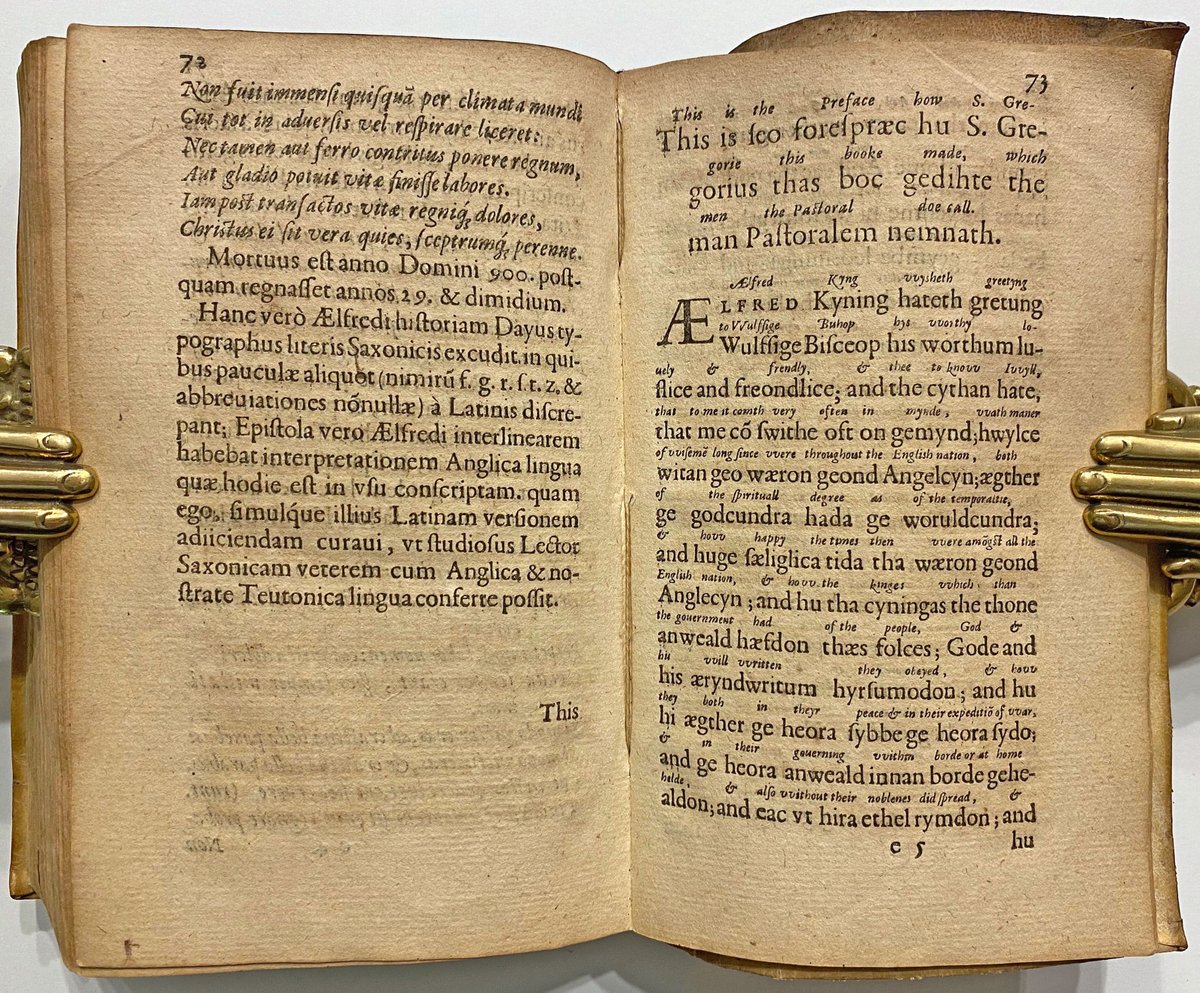 72
Non fuit immensi quisquã per climata mundi
Cui tot in adversis vel respirare liceret:
Nec tamen aut ferro contritus ponere regnum,
Aut gladio potuit vitæ finisse labores.
Iam post transactos vitæ regniq́; dolores,
Christus ei sit vera quies, sceptrumq́; perenne.
Mortuus est anno Domini 900. post-
quam regnasset annos 29. & dimidium.
Hanc verò Ælfredi historiam Dayus ty-
pographus literis Saxonicis excudit. in qui-
bus pauculæ aliquot (nimirũ f. g. r. s. t. z. &
abbreuiationes nõnullæ) à Latinis discre-
pant; Epistola vero Ælfredi interlinearem
habebat interpretationem Anglica lingua
quæ hodie est in vsu conscriptam. quam
ego, simulq́ue illius Latinam versionem
adiiciendam curaui, vt studiosus Lector
Saxonicam veterem cum Anglica & no-
strate Teutonica lingua conferte possit.
This
73
This is the Preface how S. Gre-
This is seo forespræc hu S. Gre-
gorie this booke made, which
gorius thas boc gedihte the
men the Pastoral doe call.
man Pastoralem nemnath.
Ælfred Kyng vvysheth greetyng
ÆLFRED Kyning hateth gretung
to VVulfsige Bishop hys vvorthy lo-
Wulfsige Bisceop his worthum lu-
uely & frendly, & thee to knovv I vvyll,
flice and freondlice; and the cythan hate,
that to me it comth very often in mynde, vvath maner
that me cõ swithe oft on gemynd; hwylce
of vvisemẽ long since vvere throughout the English nation, both
witan geo wæron geond Angelcyn; ægther
of the spirituall degree as of the temporaltie,
ge godcundra hada ge woruldcundra;
& hovv happy the times then vvere amõgst all the
and huge sæliglica tida tha wæron geond
English nation, & hovv the kinges vvhich than
Anglecyn; and hu tha cyningas the thone
the gouernment had of the people, God &
anweald hæfdon thæs folces; Gode and
hu vvill vvritten they obeyed, & hovv
his æryndwritum hyrsumodon; and hu
they both in theyr peace & in their expeditiõ of vvar,
hi ægther ge heora sybbe ge heora sydo;
& in their gouerning vvithin borde or at home
and ge heora anweald innan borde gehe-
helde, & also vvithout their noblenes did spread, &
aldon; and eac vt hira ethel rymdon; and
e 5 hu